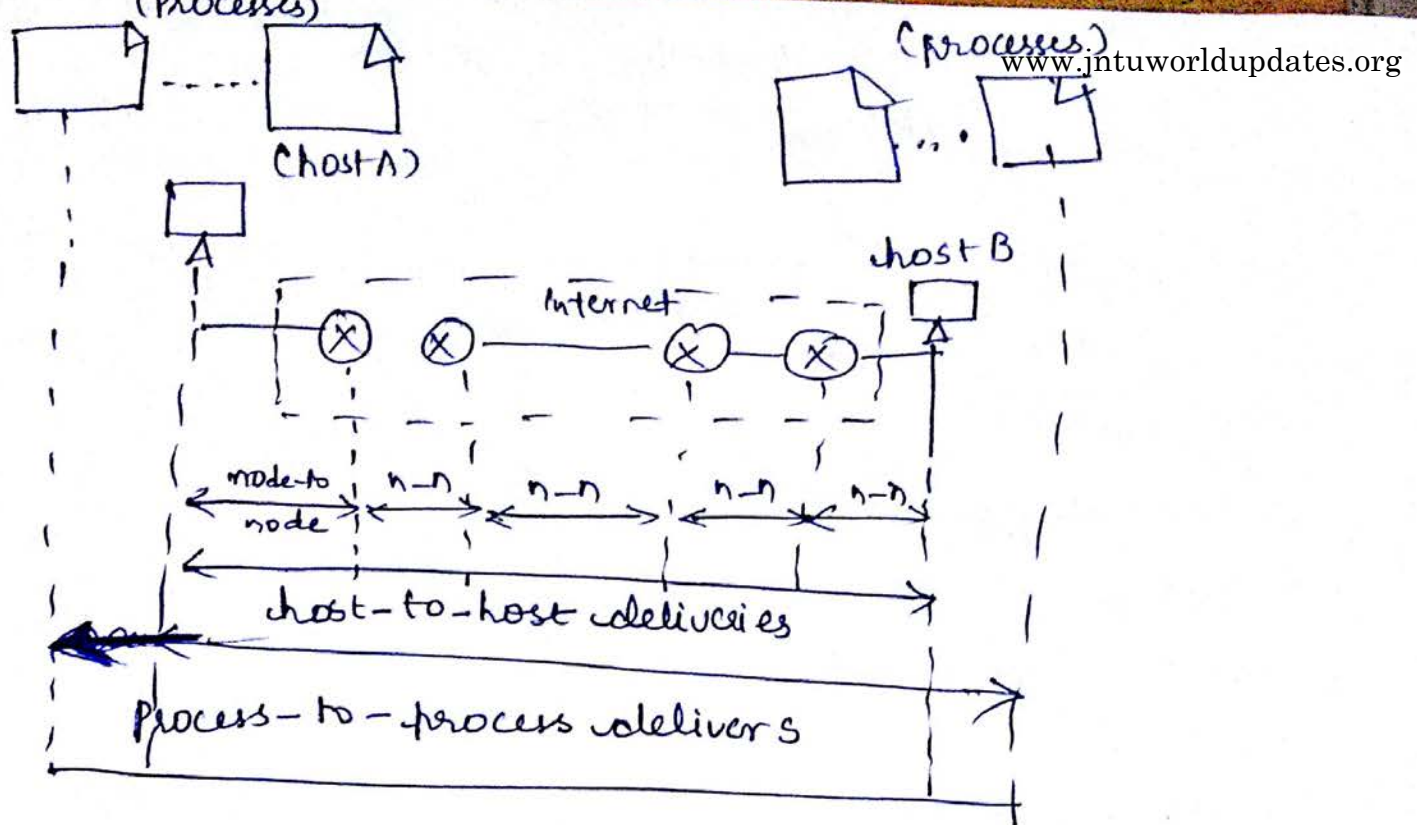 (processes)
(processes)
www.jntuworldupdates.org
(host A)
host B
Internet
node-to
node
n-n
n-n
n-n
n-n
host-to-host deliveries
Process-to-process delivers